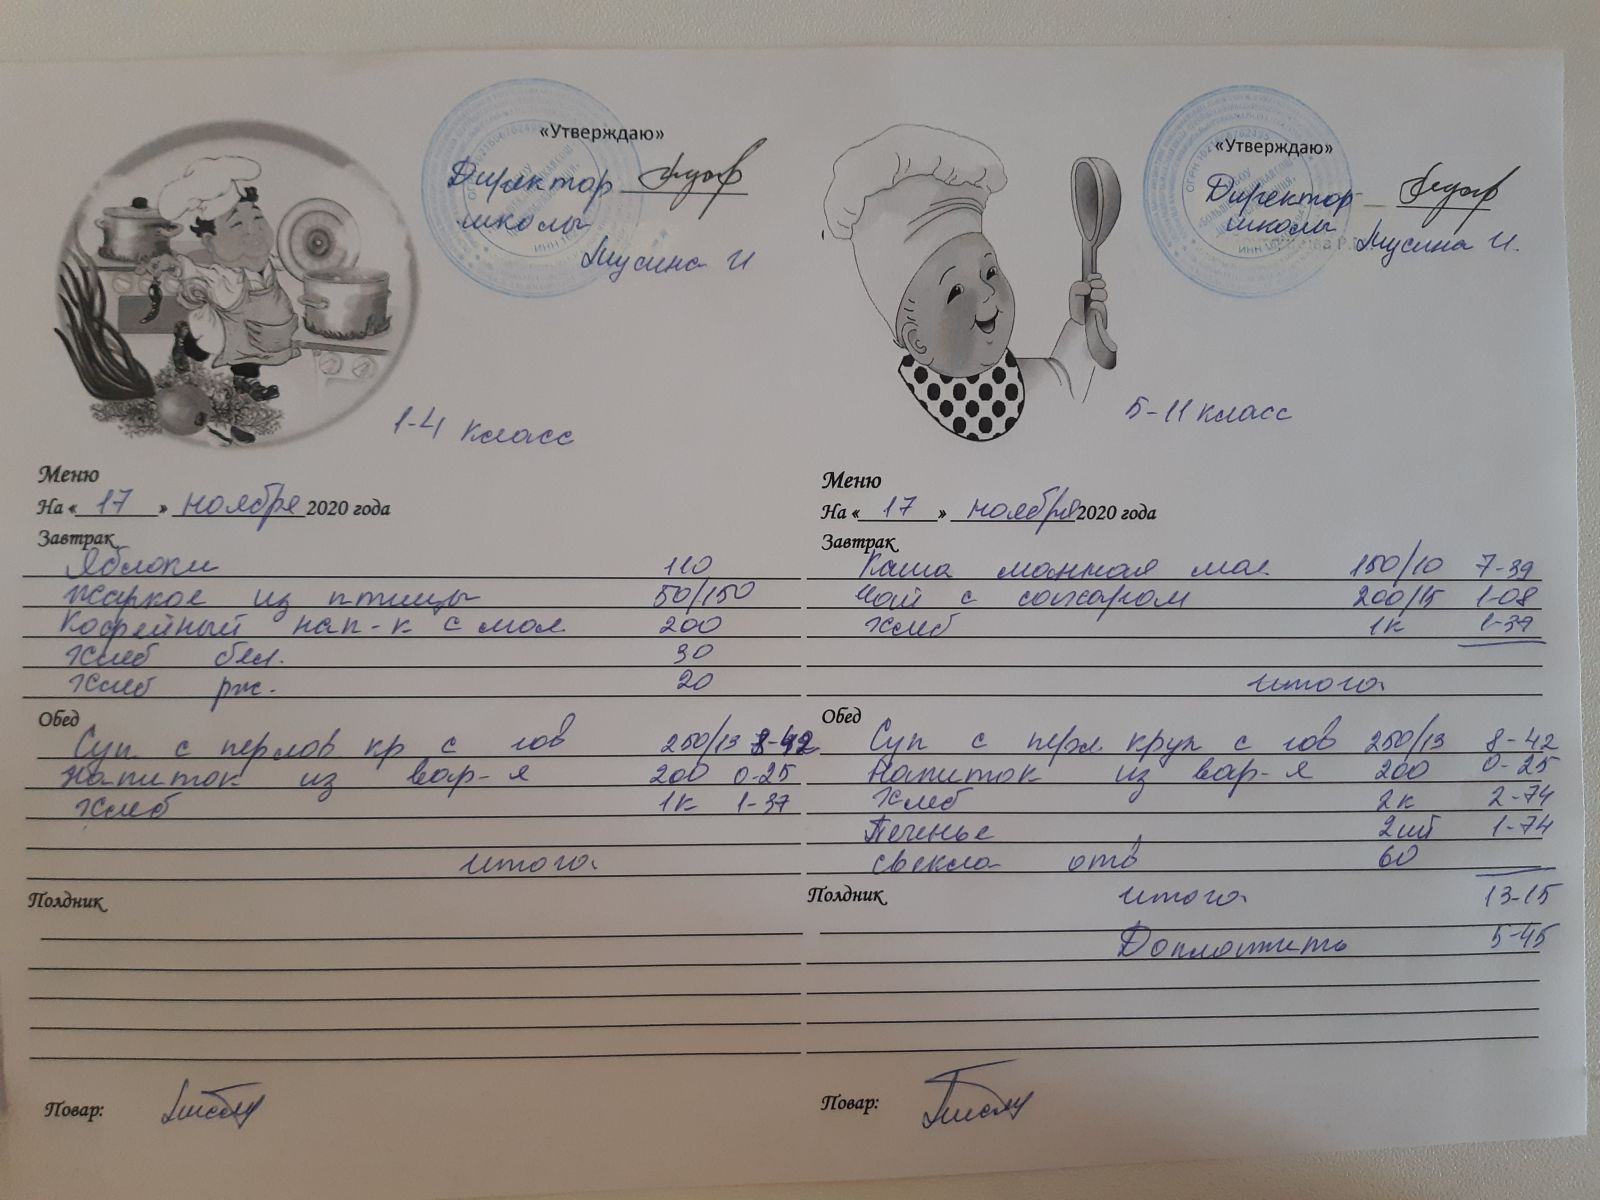 «Утверждаю»
Директор
школы
1-4 класс
Меню
На «17» ноября 2020 года
Завтрак
Яблоки 110
Жаркое из птицы 50/150
Кофейный нап-к с мол 200
Хлеб бел. 30
Хлеб рж. 20
Обед
Суп с перлов кр с гов 250/13 8-42
Напиток из вар-я 200 0-25
Хлеб 1к 1-37
итого
Полдник
Повар:
«Утверждаю»
Директор
школы
5-11 класс
Меню
На «17» ноября 2020 года
Завтрак
Каша манная мол 150/10 7-39
Чай с сахаром 200/15 1-08
Хлеб 1к 1-37
итого
Обед
Суп с перл круп с гов 250/13 8-42
Напиток из вар-я 200 0-25
Хлеб 2к 2-74
Печенье 2шт 1-74
Свекла отв 60
Полдник итого 13-15
Доплатить 5-45
Повар: